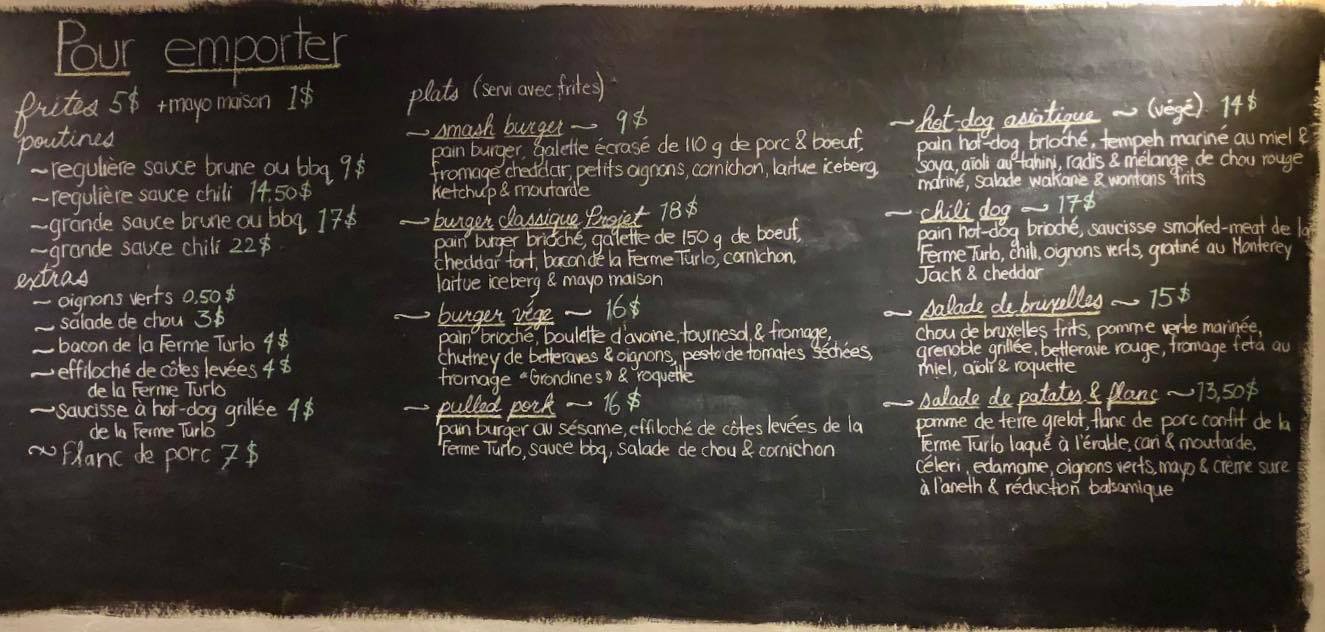 Pour emporter
frites 5$ +mayo maison 1$
poutines
~regulière sauce brune ou bbq 9$
~regulière sauce chili 14,50$
~grande sauce brune ou bbq 17$
~grande sauce chili 22$
extras
~ oignons verts 0,50$
~ salade de chou 3$
~ bacon de la Ferme Turlo 4$
~ effiloché de côtes levées 4$
de la Ferme Turlo
~ saucisse à hot-dog grillée 4$
de la Ferme Turlo
~ flanc de porc 7$
plats (servi avec frites)
~ smash burger ~ 9$
pain burger, galette écrasé de 110 g de porc & boeuf,
fromage cheddar, petits oignons, cornichon, laitue iceberg,
ketchup & moutarde
~ burger classique Projet 18$
pain burger brioché, galette de 150 g de boeuf,
cheddar fort, bacon de la Ferme Turlo, cornichon,
laitue iceberg & mayo maison
~ burger végé ~ 16$
pain brioché, boulette d'avoine, tournesol, & fromage,
chutney de betteraves & oignons, pesto de tomates séchées,
fromage "Grondines" & roquette
~ pulled pork ~ 16$
pain burger au sésame, effiloché de côtes levées de la
Ferme Turlo, sauce bbq, salade de chou & cornichon
~ hot-dog asiatique ~ (végé) 14$
pain hot-dog brioché, tempeh mariné au miel &
soya, aïoli au tahini, radis & mélange de chou rouge
mariné, salade wakane & wontons frits
~ chili dog ~ 17$
pain hot-dog brioché, saucisse smoked-meat de la
Ferme Turlo, chili, oignons verts, gratiné au Monterey
Jack & cheddar
~ salade de bruxelles ~ 15$
chou de bruxelles frits, pomme verte marinée,
grenoble grillée, betterave rouge, fromage feta au
miel, aïoli & roquette
~ salade de patates & flanc ~ 13,50$
pomme de terre grelot, flanc de porc confit de la
Ferme Turlo laqué à l'érable, cari & moutarde,
céleri, edamame, oignons verts, mayo & crème sure
à l'aneth & réduction balsamique